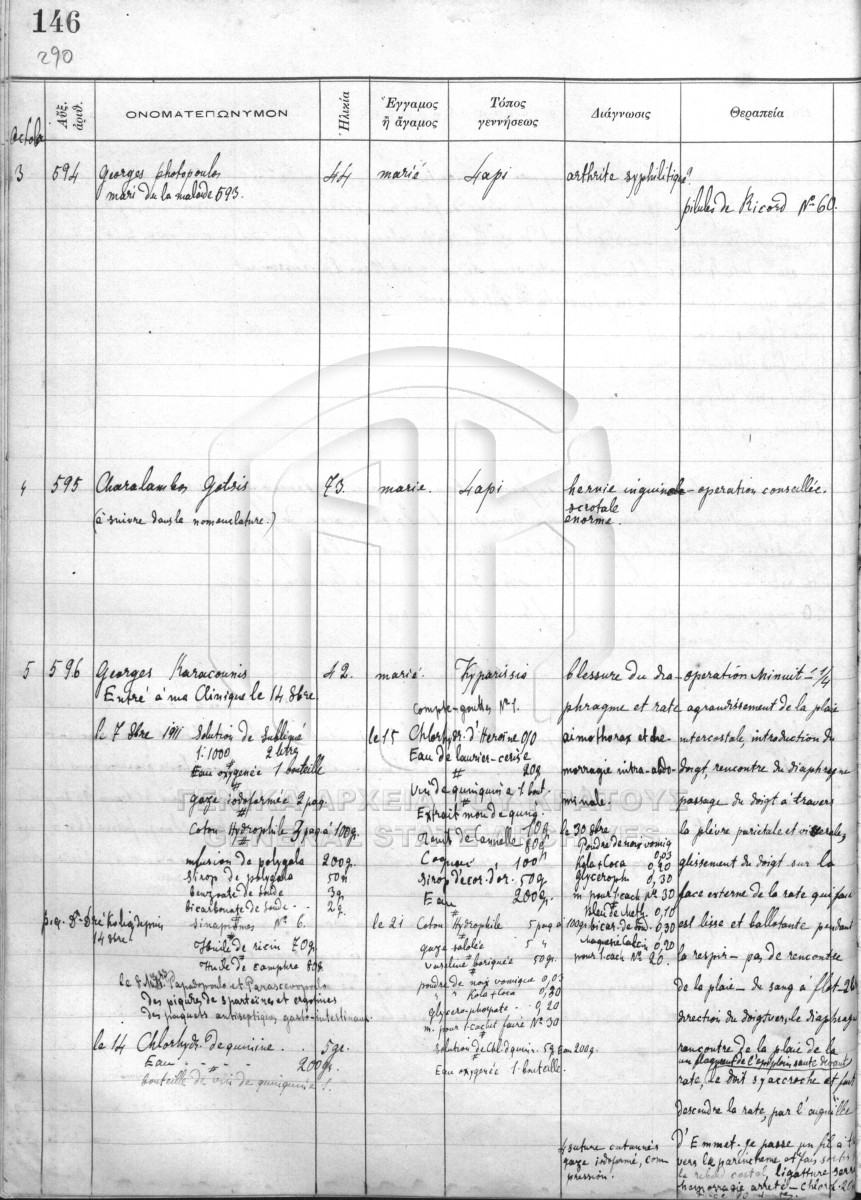 146
290
Αὔξ. ἀριθ.
ΟΝΟΜΑΤΕΠΩΝΥΜΟΝ
Ἡλικία
Ἔγγαμος ἢ ἄγαμος
Τόπος γεννήσεως
Διάγνωσις
Θεραπεία
3 594 Georges photopoulos 44 marié Lapi arthrite syphilitique
mari de la malade 593.
pilules de Ricord No 60.
4 595 Charalambos 73. marie. Lapi hernie inguinale - operation conseillée.
(à suivre dans la nomenclature.)
scrotale
enorme.
5 596 Georges Karacounis 42. marié. Kyparissia
Entré à ma Clinique le 14 8bre
le 7 8bre 1911 Solution de Sublimé
1:1000 2 litres
Eau oxygenée 1 bouteille
gaze iodoformée 2 paq
Coton Hydrophile paq à 100g.
infusion de polygala 200g.
Sirop de polygala 50g
benzoate de Soude 3g
bicarbonate de Soude 2g.
sinapismes No 6.
Huile de ricin 70g.
Huile de camphre
14 8bre
Papadopoulo et Parascevopoulo
Des piqures de spartaines et ergotines
Des paquets antiseptiques gastro-intestinaux
le 14 Chlorhydr. de quinine 5gr.
Eau 200gr.
bouteille de vin de quinquina 1.
Compte-gouttes No 1.
le 15 Chlorhydr. d'Heroine
Eau de laurier-cerise
20g
Vin de quinquina 1 bout.
Extrait mou de quinq.
Cognac 100
Sirop d'ecor. d'or. 50g.
Eau 200g.
le 21 Coton Hydrophile 5 paq à 100g
gaze salolée 5
Vaseline boriquée 50gr.
poudre de noix vomique 0,03
Kola + Coca 0,30
glycero-phosphate 0,20
m. pour 1 cachet faire No 30
Eau 200g.
Eau oxygenée 1 bouteille.
blessure du dia-
phragme et rate
morragie intra-abdo-
minale.
le 30 8bre
Poudre de noix vomiq
0,03
Kola + Coca 0,20
glyceroph 0,30
m. pour 1 cach No 30
Bleu de Meth. 0,10
bicar. de Soud. 0,30
Magnesie Calcin 0,20
pour 1 cach No 20.
suture cutannés
gaze iodoformé, com
pression.
operation Minuit
agrandissement de la plaie
intercostale, introduction du
doigt, rencontre du diaphragme
passage du doigt à travers
la plèvre parietale et viscerales,
glissement du doigt sur la
face externe de la rate qui
est lisse et ballotante pendant
la respir- pas de rencontre
de la plaie - du sang à flot
direction du doigt vers le diaphragme
rencontre de la plaie de la
rate, le doit s'y accroche et fait
descendre la rate, par l'aiguille
D'Emmet. je passe un fil à tra
vers la parincheme et fais sortir
le rebord costal, ligatture
hemorragie arreté
ΓΕΝΙΚΑ ΑΡΧΕΙΑ ΤΟΥ ΚΡΑΤΟΥΣ
GENERAL STATE ARCHIVES